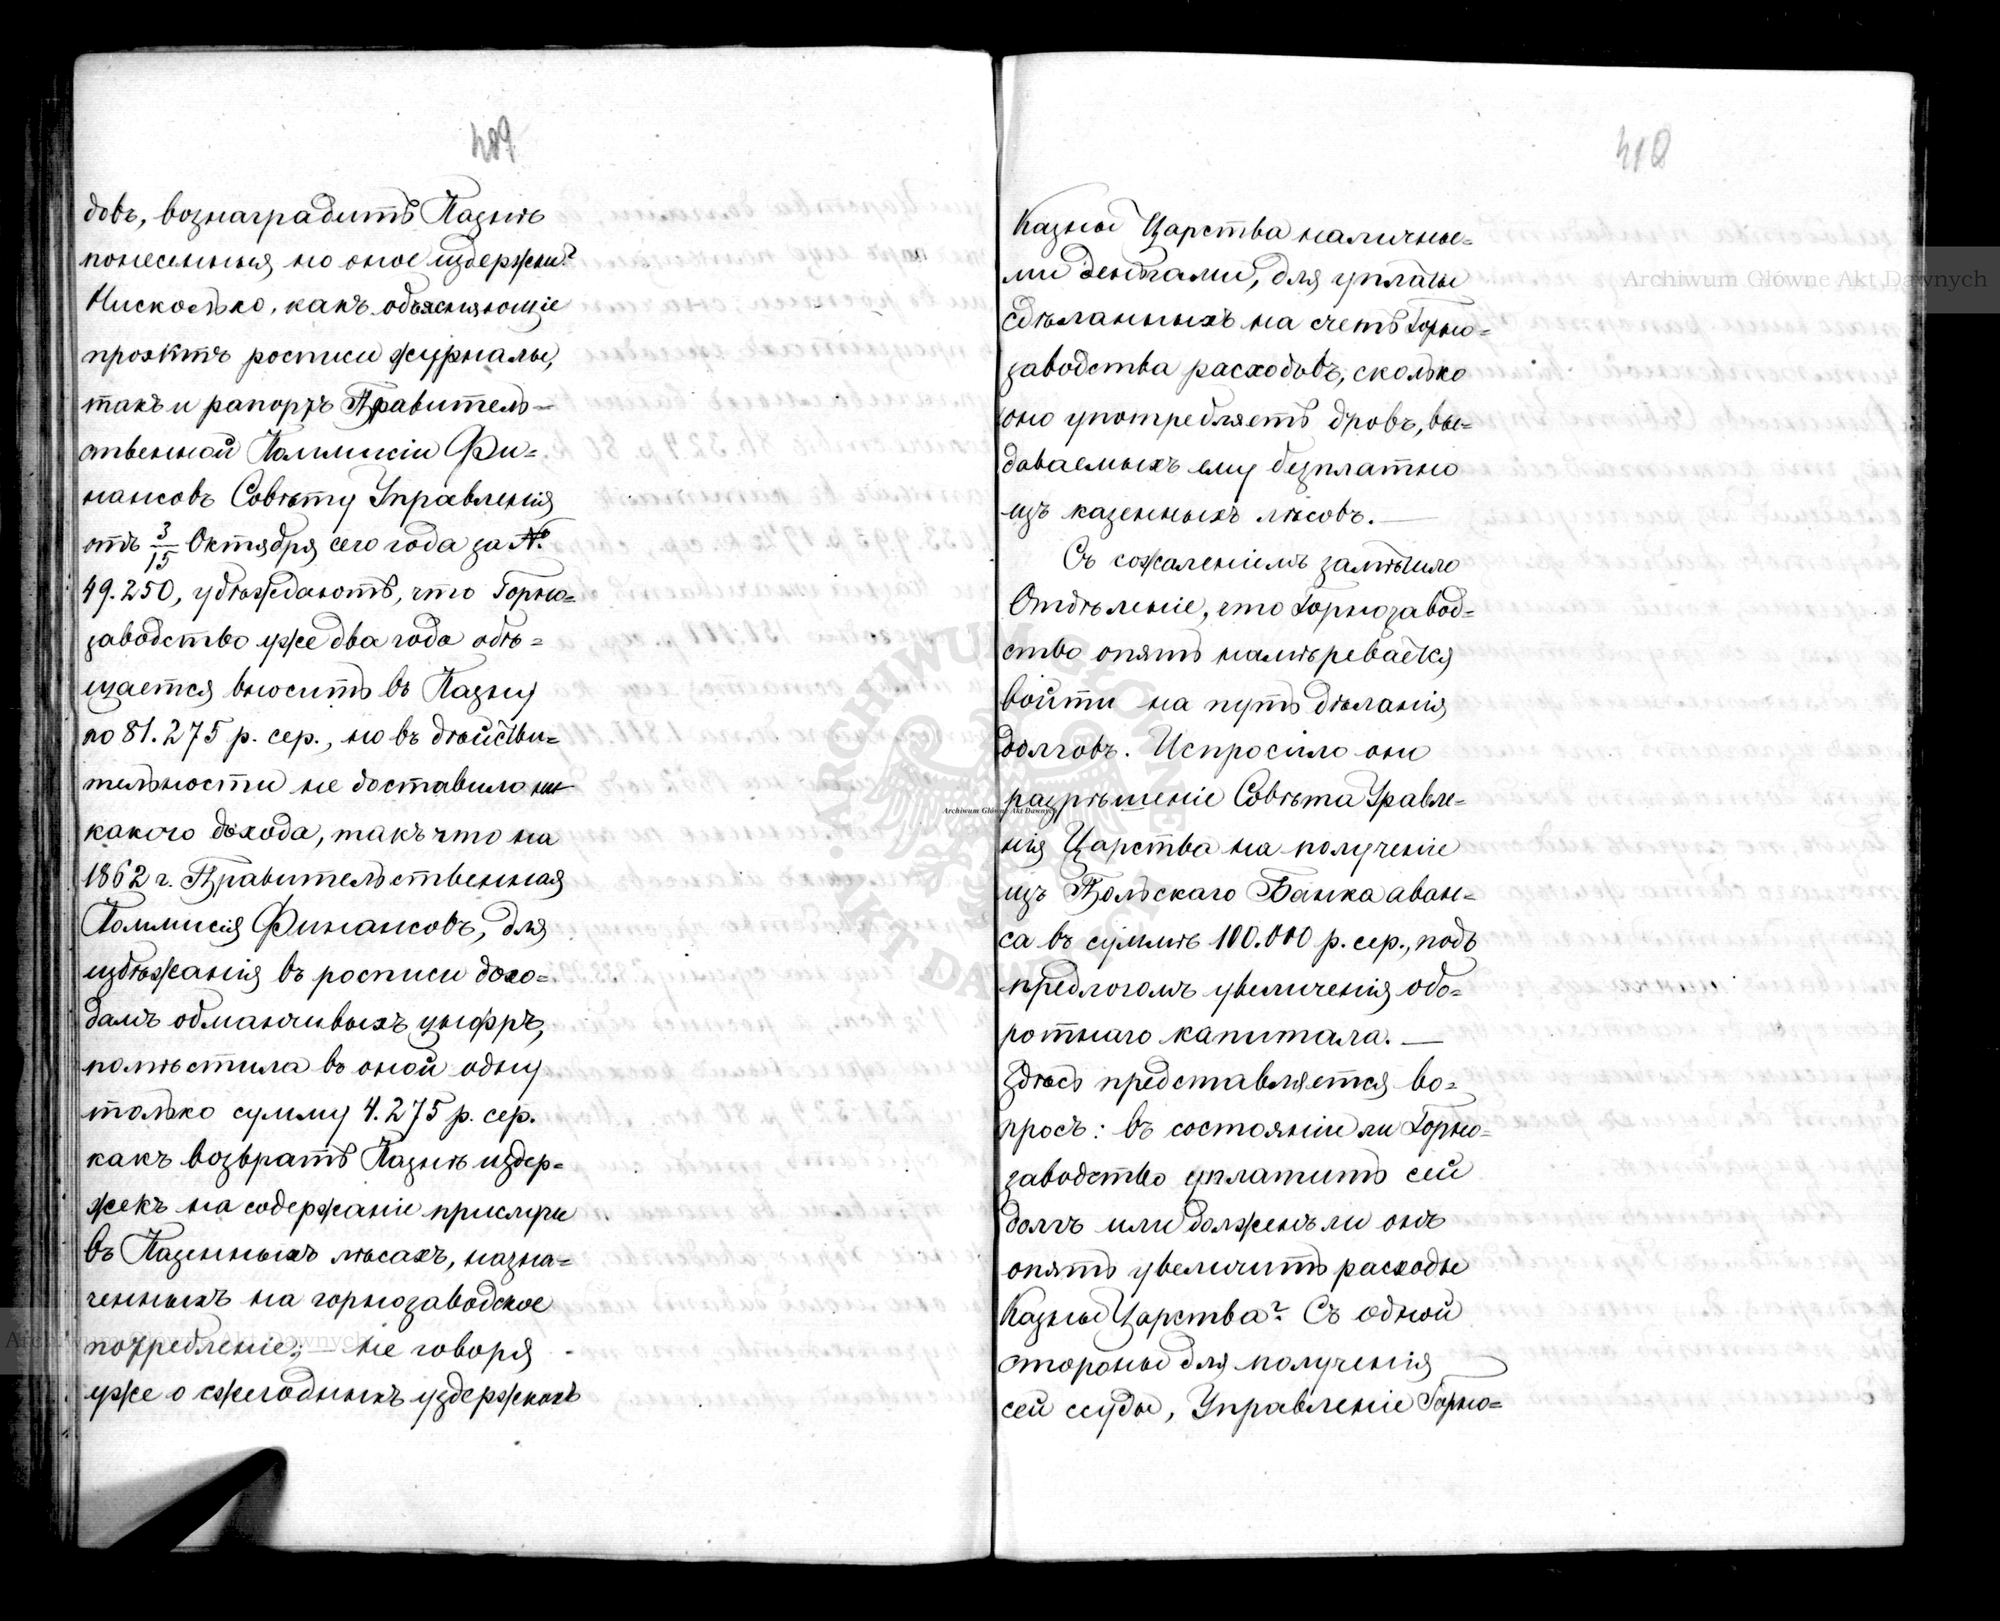 489
довъ, вознаградить Казнѣ
понесенныя но оное издержки?
Нисколько, какъ объясняющіе
проэктъ росписи журналы,
такъ и рапортъ Правитель-
ственной Коммисіи Фи=
нансовъ Совѣту Управленія
отъ 3/15 Октября сего года за №
49.250, убѣждаютъ, что Горно=
заводство уже два года обѣ=
щается вносить въ Казну
по 81.275 р. сер., но въ дѣйстви=
тельности не доставило ни
какого дохода, такъ что на
1862 г. Правительственная
Коммисія Финансовъ, для
избѣжанія въ росписи дохо=
дамъ обманчивыхъ цыфръ,
помѣстила въ оной одну
только сумму 4.275 р. сер.
какъ возвратъ Казнѣ издер=
жекъ на содержаніе прислуги
въ Казенныхъ лѣсахъ, назна=
ченныхъ на горнозаводское
потребленіе; — не говоря
уже о ежегодныхъ издержкахъ
410
Казны Царства наличны=
ми деньгами, для уплаты
сдѣланныхъ на счетъ Горно=
заводства расходовъ, сколько
оно употребляетъ дровъ, вы=
даваемыхъ ему безплатно
изъ казенныхъ лѣсовъ. —
Съ сожаленіемъ замѣтило
Отдѣленіе, что Горнозавод=
ство опять намѣревается
войти на путь дѣланія
долговъ. Испросило они
разрѣшеніе Совѣта Уравле=
нія Царства на полученіе
изъ Польскаго Банка аван=
са въ суммѣ 100.000 р. сер., подъ
предлогомъ увеличенія обо=
ротнаго капитала. —
Здѣсь представляется во=
просъ: въ состояніи ли Горно=
заводство уплатить сей
долгъ или долженъ ли онъ
опять увеличить расходы
Казны Царства? Съ одной
стороны для полученія
сей ссуды, Управленіе Горно=
Archiwum Główne Akt Dawnych
Archiwum Główne Akt Dawnych
Archiwum Główne Akt Dawnych
ARCHIWUM GŁÓWNE AKT DAWNYCH